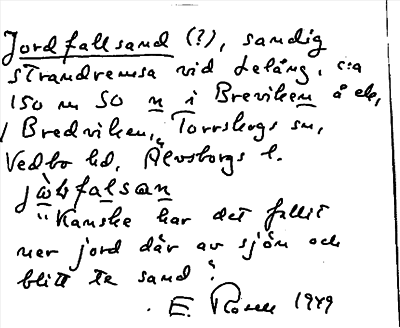 Jordfallsand (?), sandig
strandremsa vid Lelång, c:a
150 m SO n i Breviken å ek,
/ Bredviken, Torrskogs sn,
Vedbo hd, Älvsborgs l.
"Kanske har det fallit
ner jord där av sjön och
blitt te sand?
E. Rosell 1949